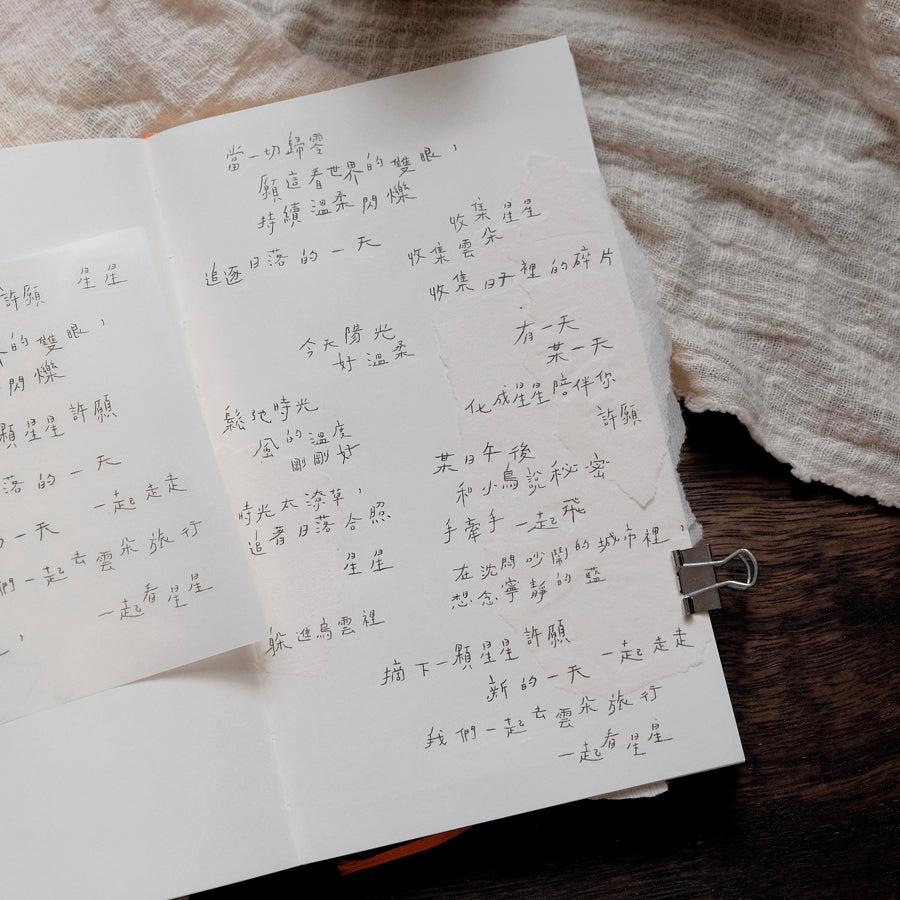 許願 星星
的雙眼，
閃爍
顆星星許願
落的一天
的一天 一起走走
們一起去雲朵旅行
一起看星星
，
當一切歸零
願這看世界的雙眼，
持續溫柔閃爍
追逐日落的一天
今天陽光
好溫柔
鬆弛時光
風的溫度
剛剛好
時光太潦草，
追著日落合照
星星
躲進烏雲裡
收集星星
收集雲朵
收集日子裡的碎片
有一天
某一天
化成星星陪伴你
許願
某日午後
和小鳥說秘密
手牽手一起飛
在沈悶吵鬧的城市裡，
想念寧靜的藍
摘下一顆星星許願 一起走走
新的一天
我們一起去雲朵旅行
一起看星星